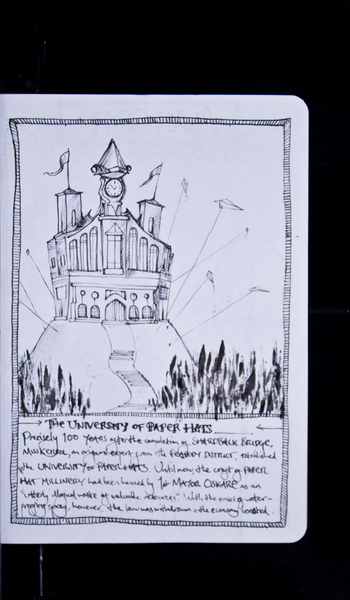 THE UNIVERSITY OF PAPER HATS
Precisely 100 years after the completion of SHARDBACK BRIDGE,
an origami expert from the DISTRICT, established
the UNIVERSITY OF PAPER HATS. Until now, the craft of PAPER
HAT MILLINERY had been banned by 1st MAYOR OSKARE as an
"utterly illogical waste of valuable resources" With the onset of water-
proofing spray, however, the law was withdrawn & the economy boosted.